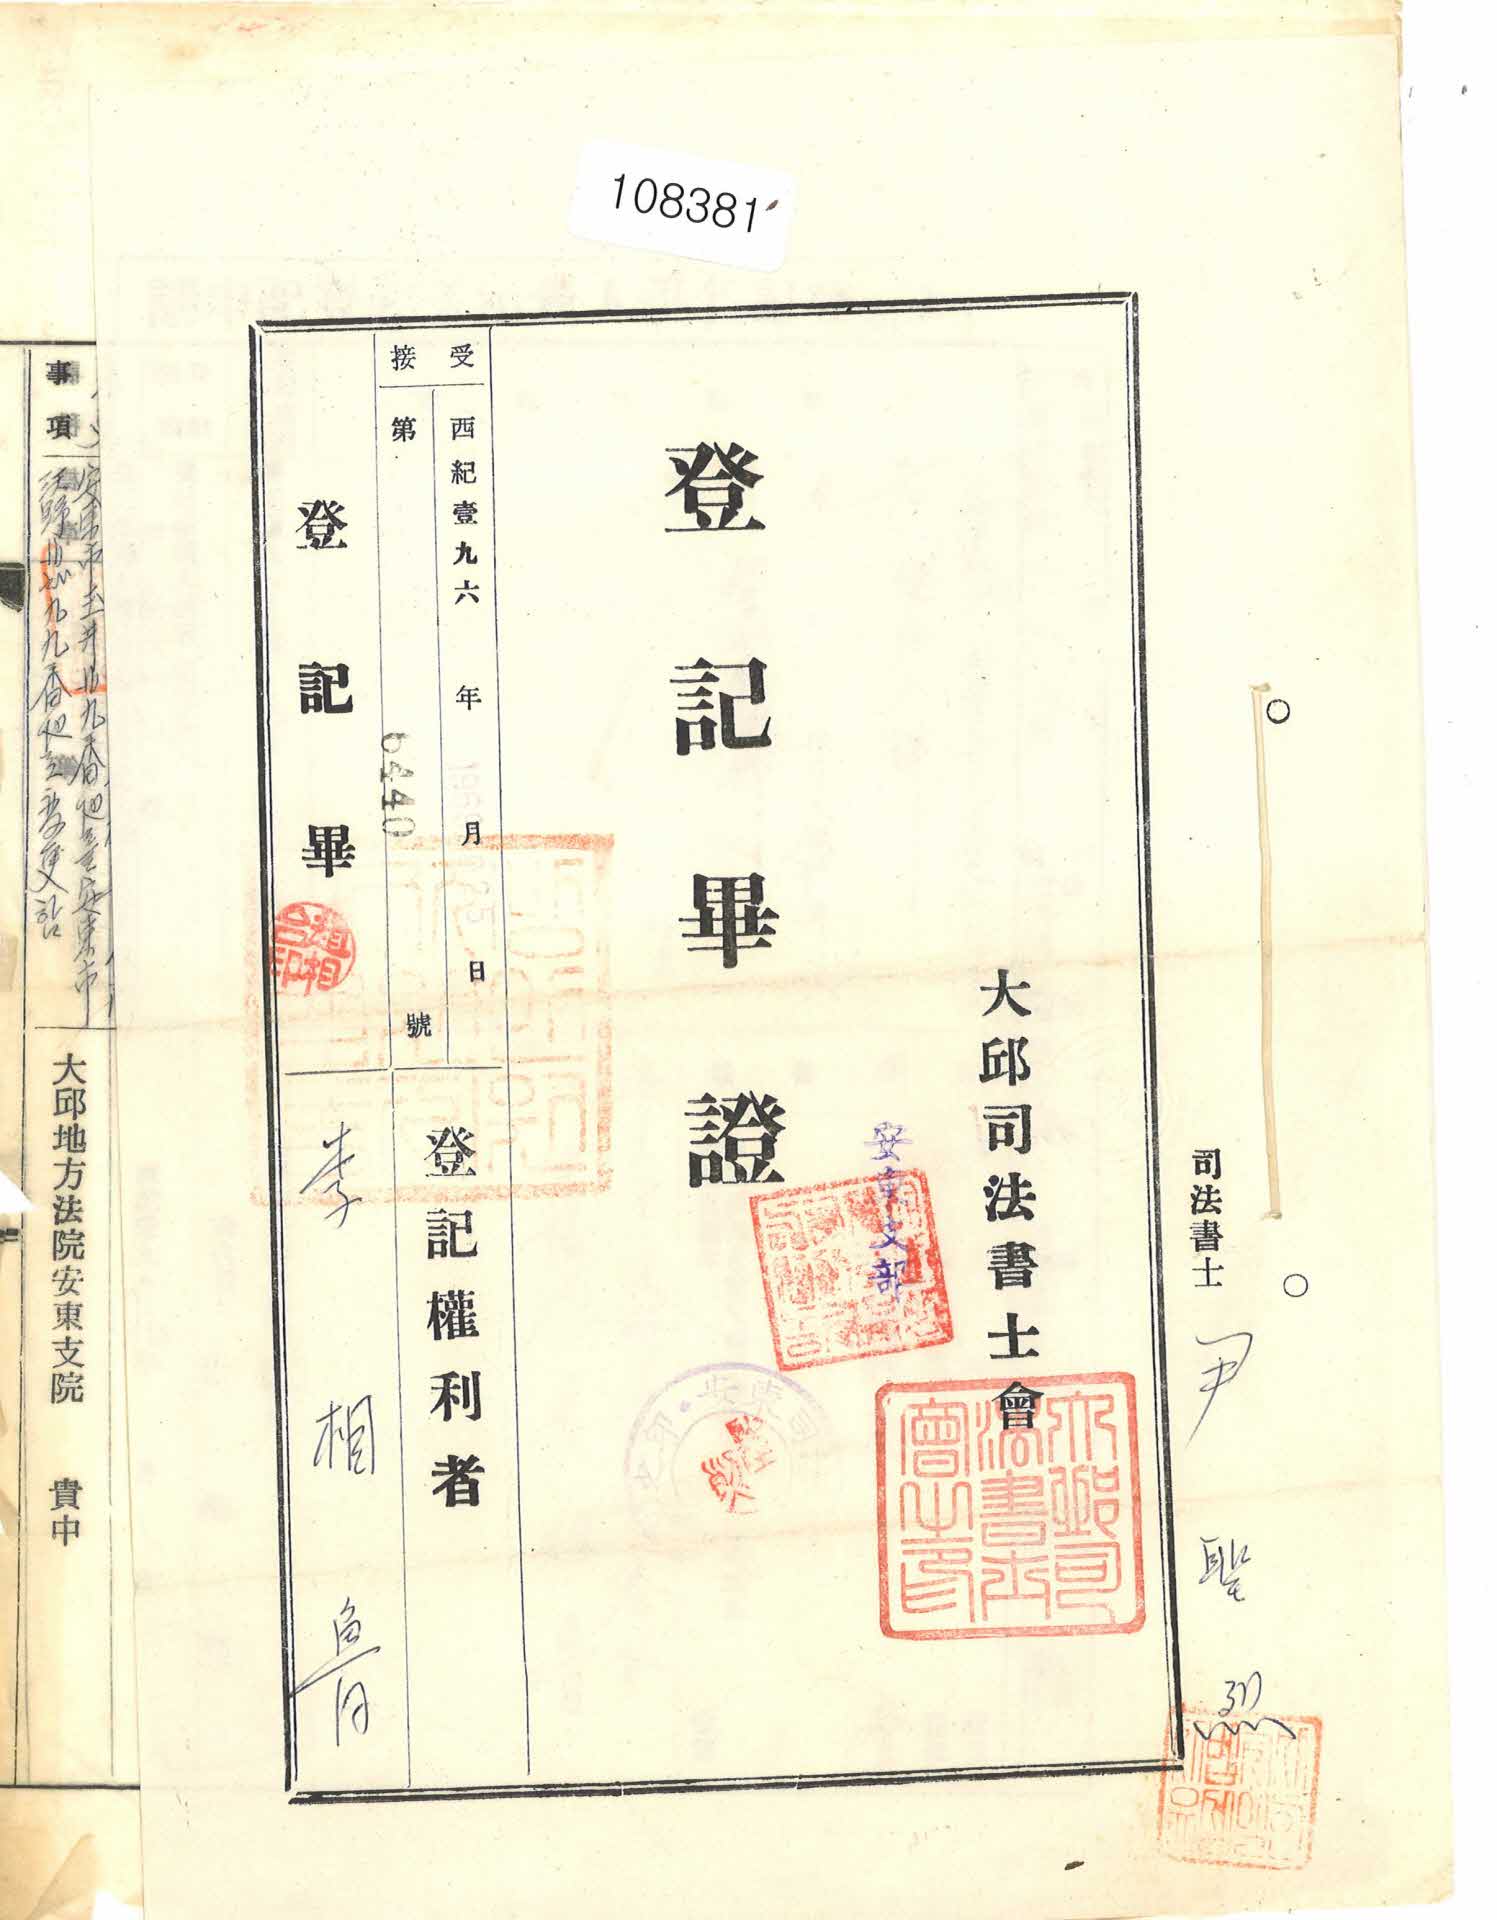 108381
司法書士 尹聖烈
大邱司法書士會
安東支部
登記畢證
受接
西紀壹九六 年 月 日
第 6440 號
登記權利者
登記畢 李相魯
事項
大邱地方法院安東支院 貴中